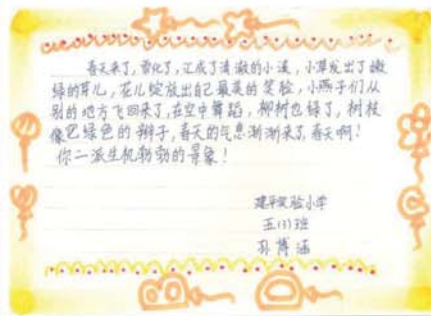 春天来了，雪化了，汇成了清澈的小溪，小草发出了嫩
绿的芽儿，花儿绽放出自己最美的笑脸，小燕子们从
别的地方飞回来了，在空中舞蹈，柳树也绿了，树枝
像它绿色的辫子，春天的气息渐渐来了，春天啊！
你一派生机勃勃的景象！
建平实验小学
五(3)班
孙博涵